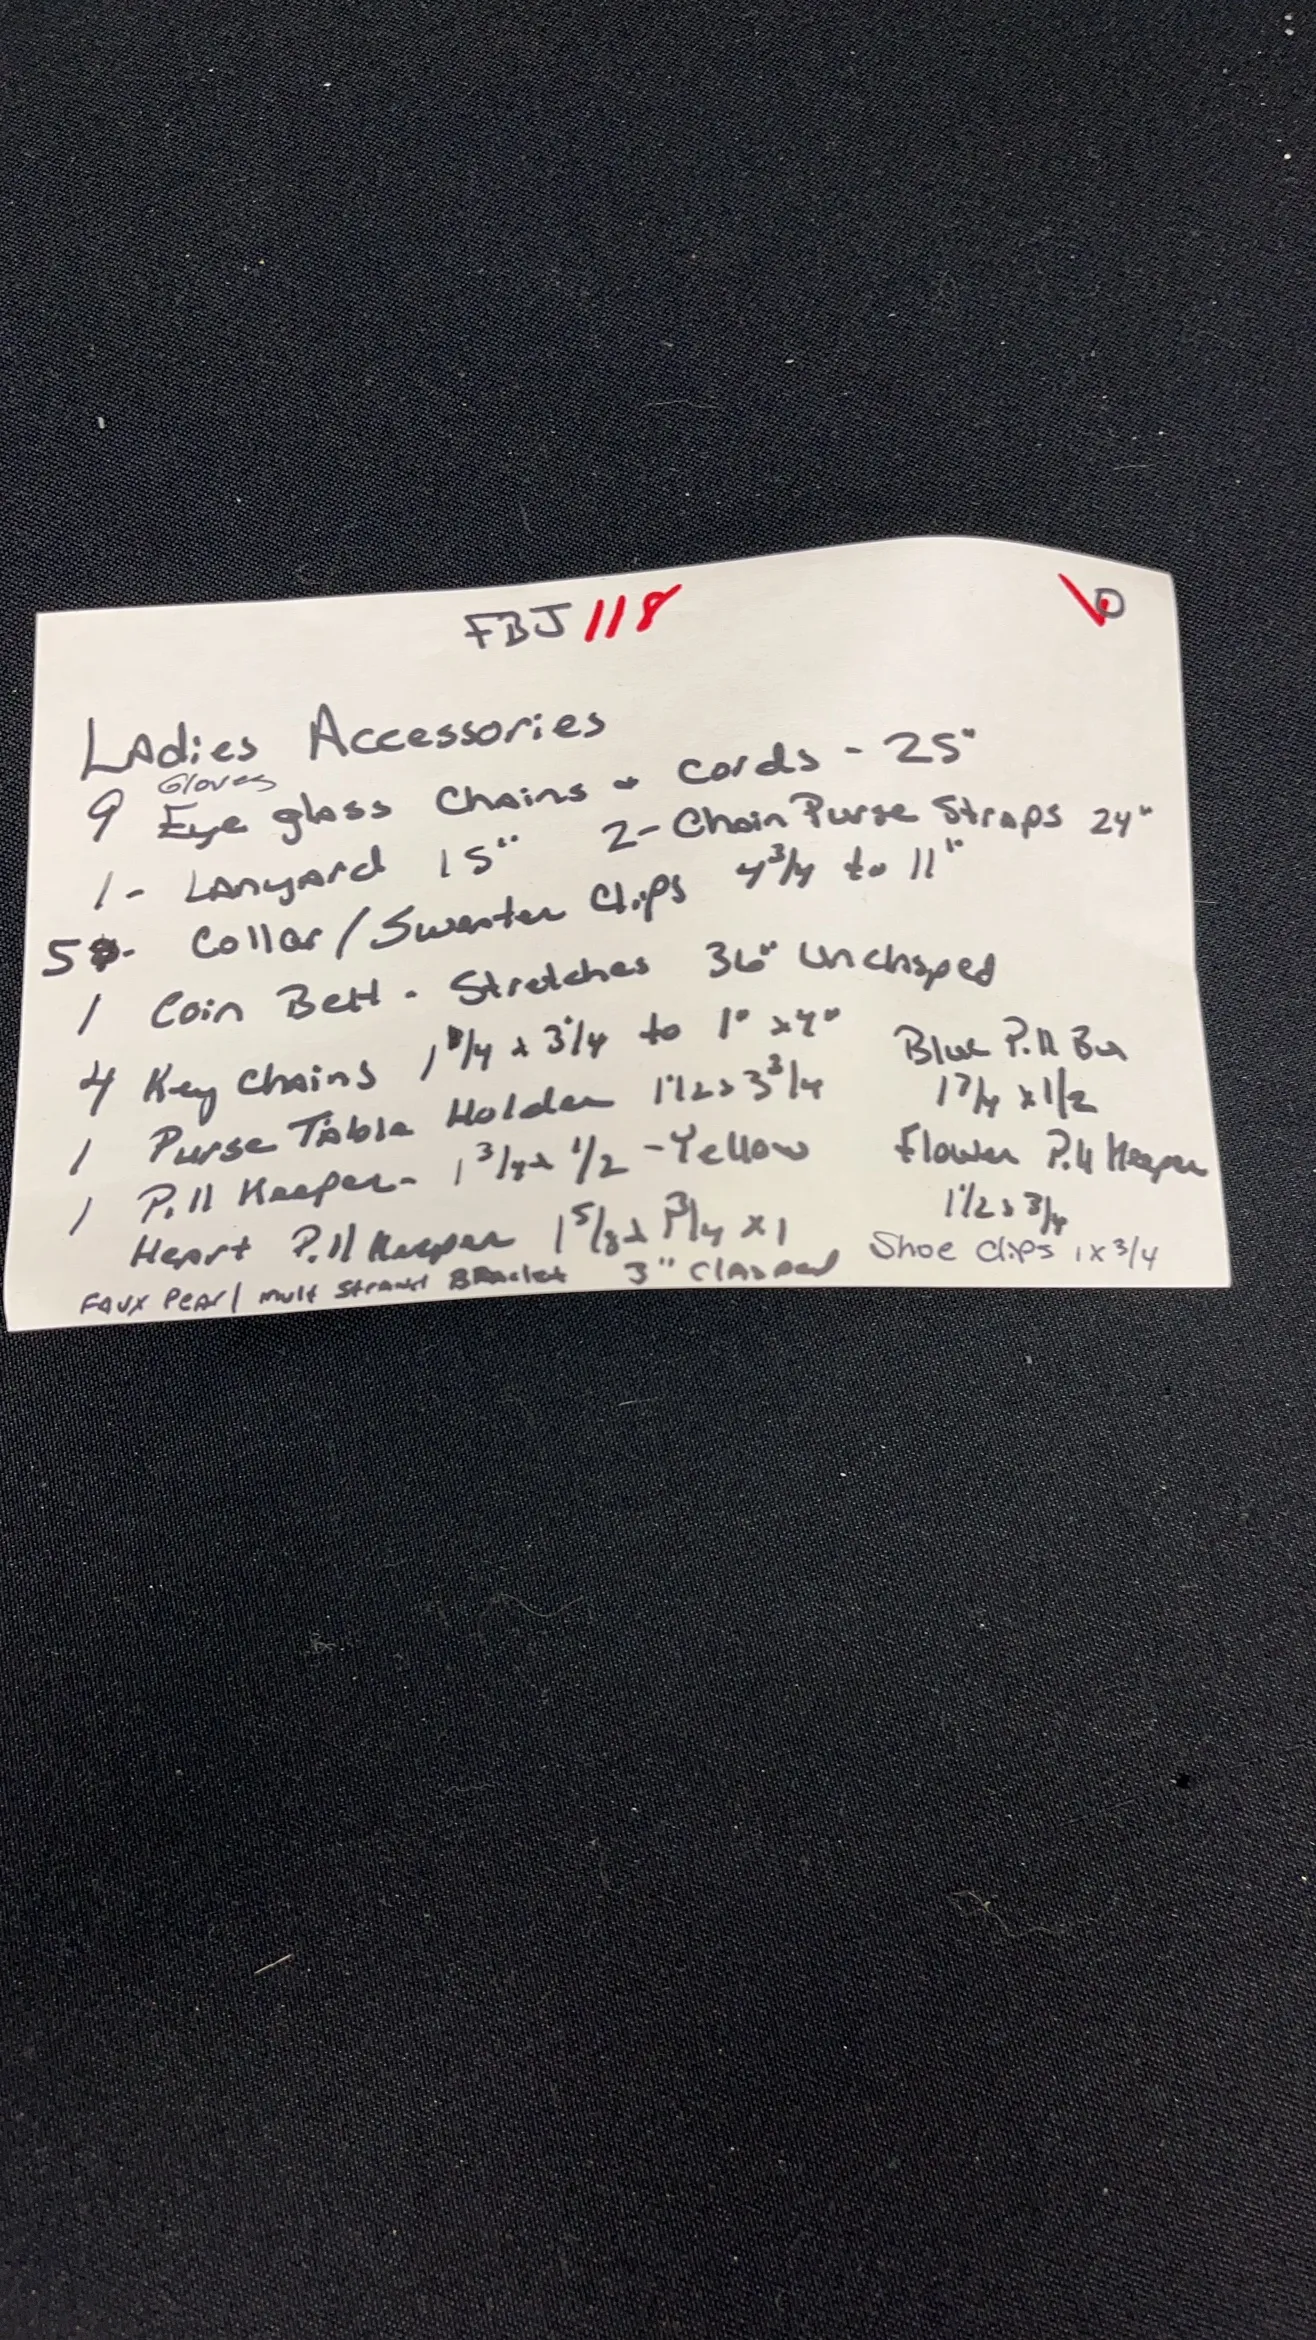 FBJ 118
Ladies Accessories
Gloves
9 Eye glass Chains + Cords - 25"
1 - Lanyard 15" 2 - Chain Purse Straps 24"
5 - Collar / Sweater Clips 4 3/4 to 11"
1 Coin Belt - Stretches 36" Unclasped
4 Key Chains 1 1/4 x 3 1/4 to 1" x 4"
Blue Pill Box
1 Purse Table Holder 1 1/2 x 3 3/4
1 3/4 x 1/2
1 Pill Keeper - 1 3/4 x 1/2 - Yellow
Flower Pill Keeper
1 1/2 x 3/4
Heart Pill Keeper 1 5/8 x 1 3/4 x 1
Shoe Clips 1 x 3/4
Faux Pearl Mult Strand Bracelet 3" Clasped